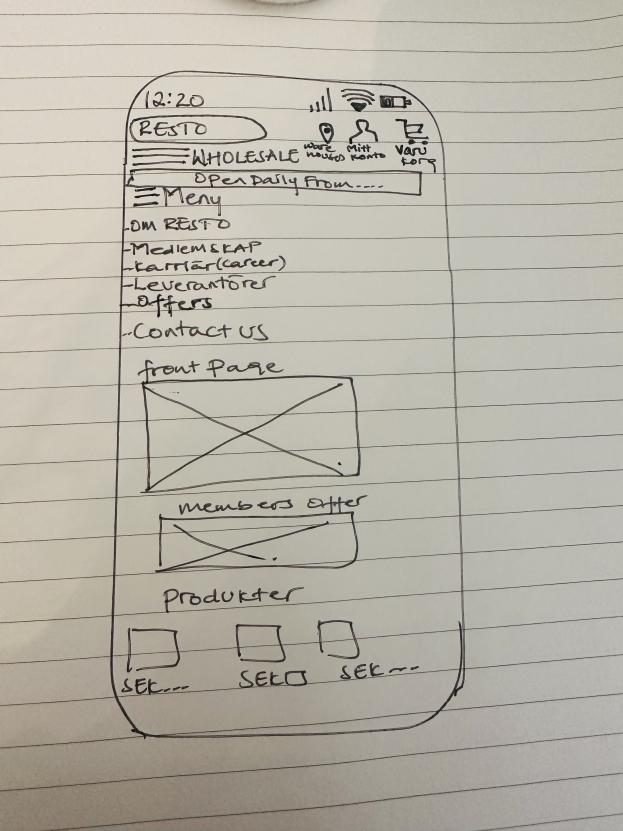 12:20
RESTO
WHOLESALE
Ware houses
Mitt Konto
Varu Korg
Open Daily From....
Meny
-OM RESTO
-MedlemsKAP
-Karriär (career)
-Leverantörer
-Offers
-Contact us
front Page
members offer
Produkter
SEK...
SEK
SEK ---